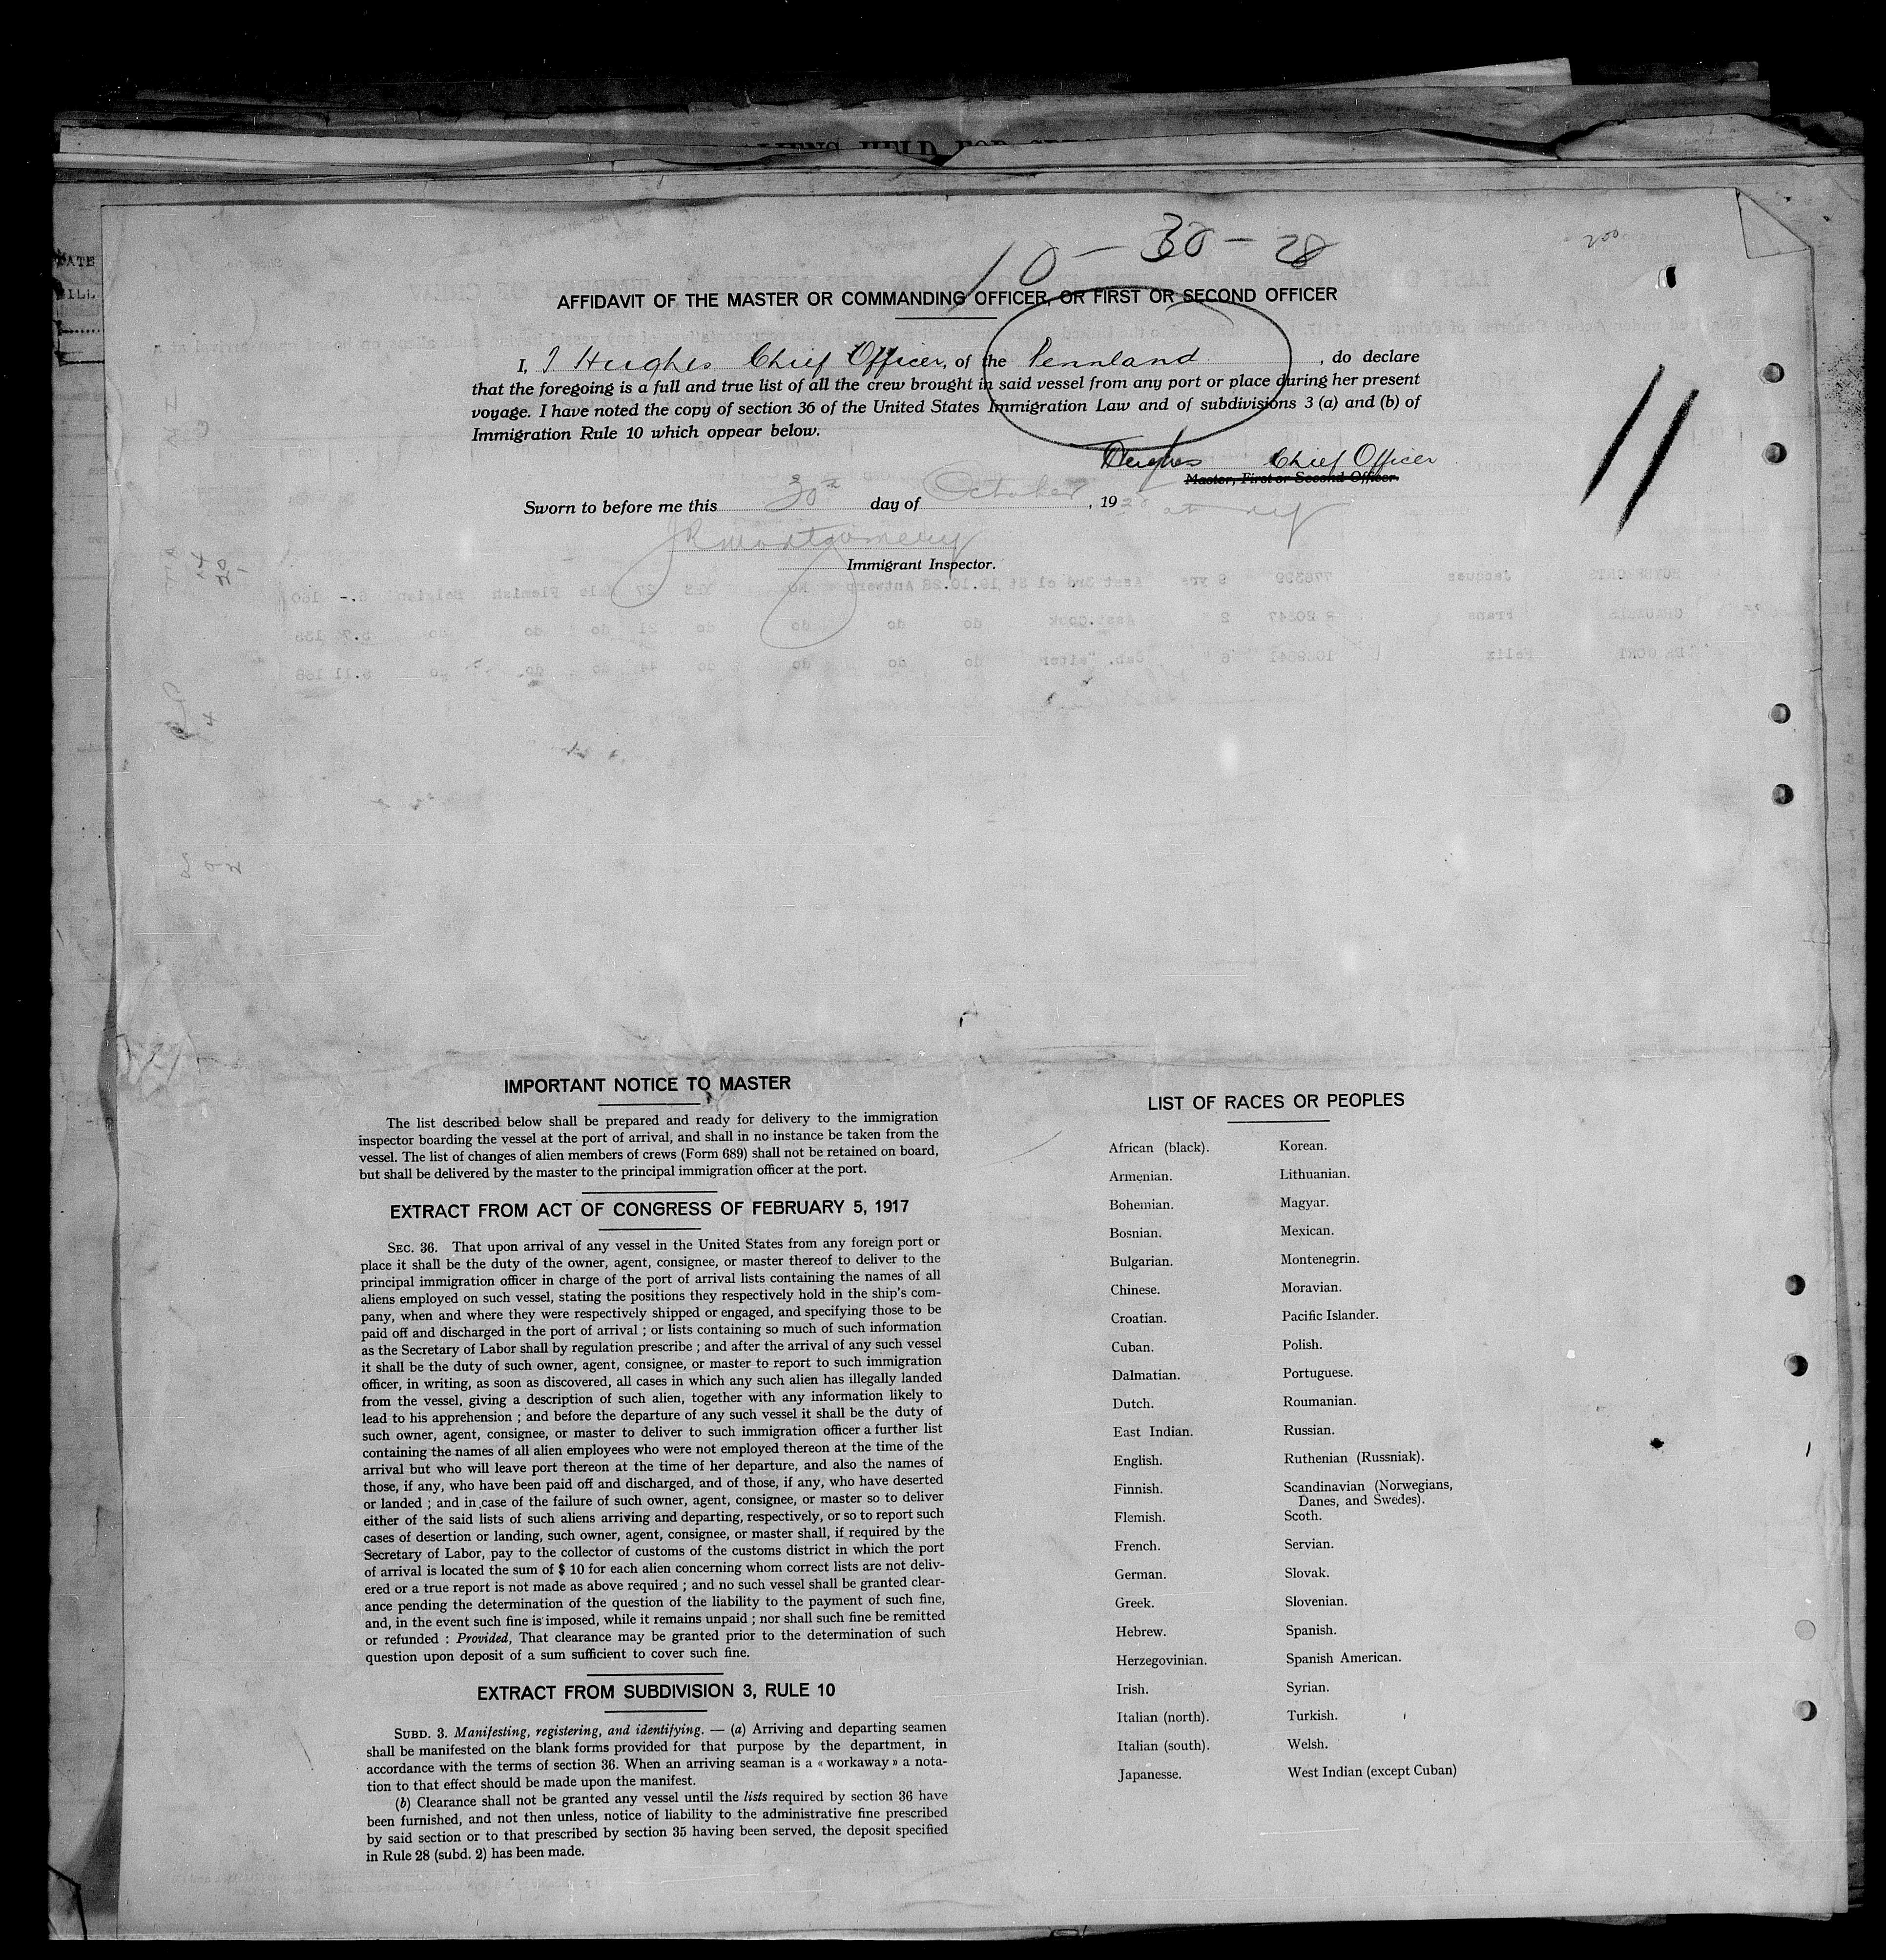 10 - 30 - 28
AFFIDAVIT OF THE MASTER OR COMMANDING OFFICER, OR FIRST OR SECOND OFFICER
I, J Hughes Chief Officer, of the Pennland, do declare
that the foregoing is a full and true list of all the crew brought in said vessel from any port or place during her present
voyage. I have noted the copy of section 36 of the United States Immigration Law and of subdivisions 3 (a) and (b) of
Immigration Rule 10 which oppear below.
Hughes Chief Officer
Master, First or Second Officer.
Sworn to before me this 30th day of October, 1928 at ny
JR Montgomery
Immigrant Inspector.
11
IMPORTANT NOTICE TO MASTER
The list described below shall be prepared and ready for delivery to the immigration
inspector boarding the vessel at the port of arrival, and shall in no instance be taken from the
vessel. The list of changes of alien members of crews (Form 689) shall not be retained on board,
but shall be delivered by the master to the principal immigration officer at the port.
EXTRACT FROM ACT OF CONGRESS OF FEBRUARY 5, 1917
SEC. 36. That upon arrival of any vessel in the United States from any foreign port or
place it shall be the duty of the owner, agent, consignee, or master thereof to deliver to the
principal immigration officer in charge of the port of arrival lists containing the names of all
aliens employed on such vessel, stating the positions they respectively hold in the ship's com-
pany, when and where they were respectively shipped or engaged, and specifying those to be
paid off and discharged in the port of arrival ; or lists containing so much of such information
as the Secretary of Labor shall by regulation prescribe ; and after the arrival of any such vessel
it shall be the duty of such owner, agent, consignee, or master to report to such immigration
officer, in writing, as soon as discovered, all cases in which any such alien has illegally landed
from the vessel, giving a description of such alien, together with any information likely to
lead to his apprehension ; and before the departure of any such vessel it shall be the duty of
such owner, agent, consignee, or master to deliver to such immigration officer a further list
containing the names of all alien employees who were not employed thereon at the time of the
arrival but who will leave port thereon at the time of her departure, and also the names of
those, if any, who have been paid off and discharged, and of those, if any, who have deserted
or landed ; and in case of the failure of such owner, agent, consignee, or master so to deliver
either of the said lists of such aliens arriving and departing, respectively, or so to report such
cases of desertion or landing, such owner, agent, consignee, or master shall, if required by the
Secretary of Labor, pay to the collector of customs of the customs district in which the port
of arrival is located the sum of $ 10 for each alien concerning whom correct lists are not deliv-
ered or a true report is not made as above required ; and no such vessel shall be granted clear-
ance pending the determination of the question of the liability to the payment of such fine,
and, in the event such fine is imposed, while it remains unpaid ; nor shall such fine be remitted
or refunded : Provided, That clearance may be granted prior to the determination of such
question upon deposit of a sum sufficient to cover such fine.
EXTRACT FROM SUBDIVISION 3, RULE 10
SUBD. 3. Manifesting, registering, and identifying. — (a) Arriving and departing seamen
shall be manifested on the blank forms provided for that purpose by the department, in
accordance with the terms of section 36. When an arriving seaman is a « workaway » a nota-
tion to that effect should be made upon the manifest.
(b) Clearance shall not be granted any vessel until the lists required by section 36 have
been furnished, and not then unless, notice of liability to the administrative fine prescribed
by said section or to that prescribed by section 35 having been served, the deposit specified
in Rule 28 (subd. 2) has been made.
LIST OF RACES OR PEOPLES
African (black).
Armenian.
Bohemian.
Bosnian.
Bulgarian.
Chinese.
Croatian.
Cuban.
Dalmatian.
Dutch.
East Indian.
English.
Finnish.
Flemish.
French.
German.
Greek.
Hebrew.
Herzegovinian.
Irish.
Italian (north).
Italian (south).
Japanesse.
Korean.
Lithuanian.
Magyar.
Mexican.
Montenegrin.
Moravian.
Pacific Islander.
Polish.
Portuguese.
Roumanian.
Russian.
Ruthenian (Russniak).
Scandinavian (Norwegians,
Danes, and Swedes).
Scoth.
Servian.
Slovak.
Slovenian.
Spanish.
Spanish American.
Syrian.
Turkish.
Welsh.
West Indian (except Cuban)